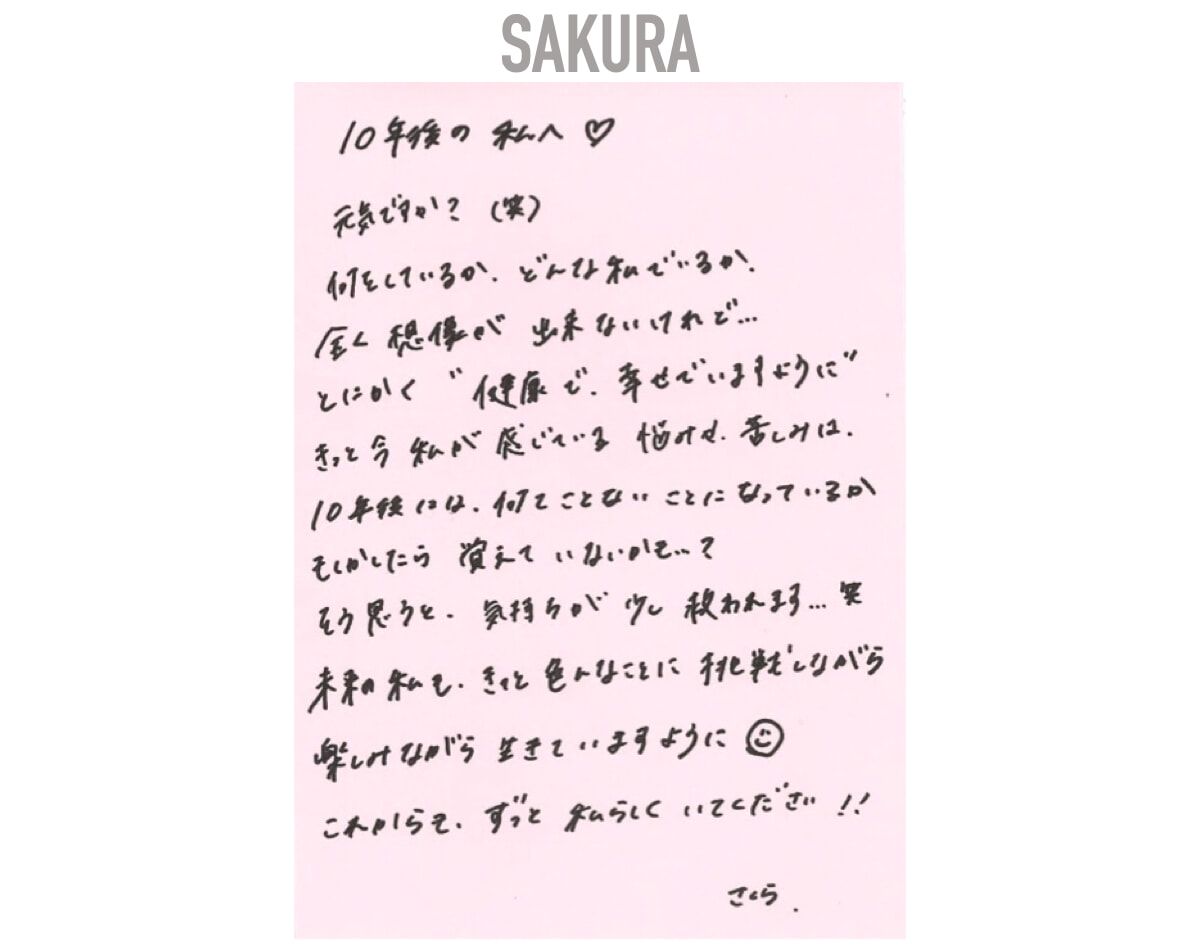 SAKURA
10年後の 私へ ♡
元気ですか？ (笑)
何をしているか、どんな私でいるか、
全く 想像が 出来ないけれど…
とにかく “健康で、幸せでいますように”
きっと今 私が 感じている 悩みや、苦しみは、
10年後には、何てことない ことになっているか
もしかしたら 覚えて いないかも…？
そう思うと、気持ちが 少し 救われます… 笑
未来の 私も、きっと 色んなことに 挑戦しながら
楽しみながら 生きて いますように ☺
これからも、ずっと 私らしく いてください !!
さくら.